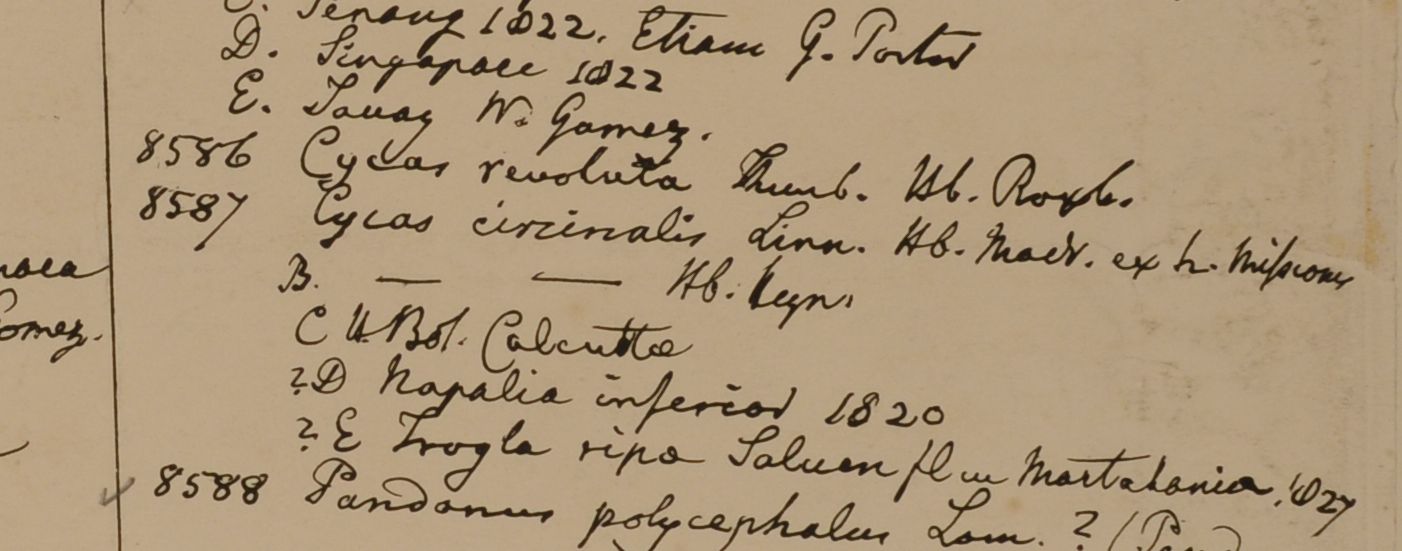 Penang 1822. Etiam G. Porter
D. Singapore 1822
E. Tavoy W. Gomez.
8586 Cycas revoluta Thunb. Hb. Roxb.
8587 Cycas circinalis Linn. Hb. Madr. ex h. Missionis
B. — — Hb. Heyn.
C H. Bot. Calcutta
?D Napalia inferior 1820
? E Trogla ripa Saluen fl in Martabania 1827
omez.
8588 Pandanus polycephalus Lam. ? (Pand